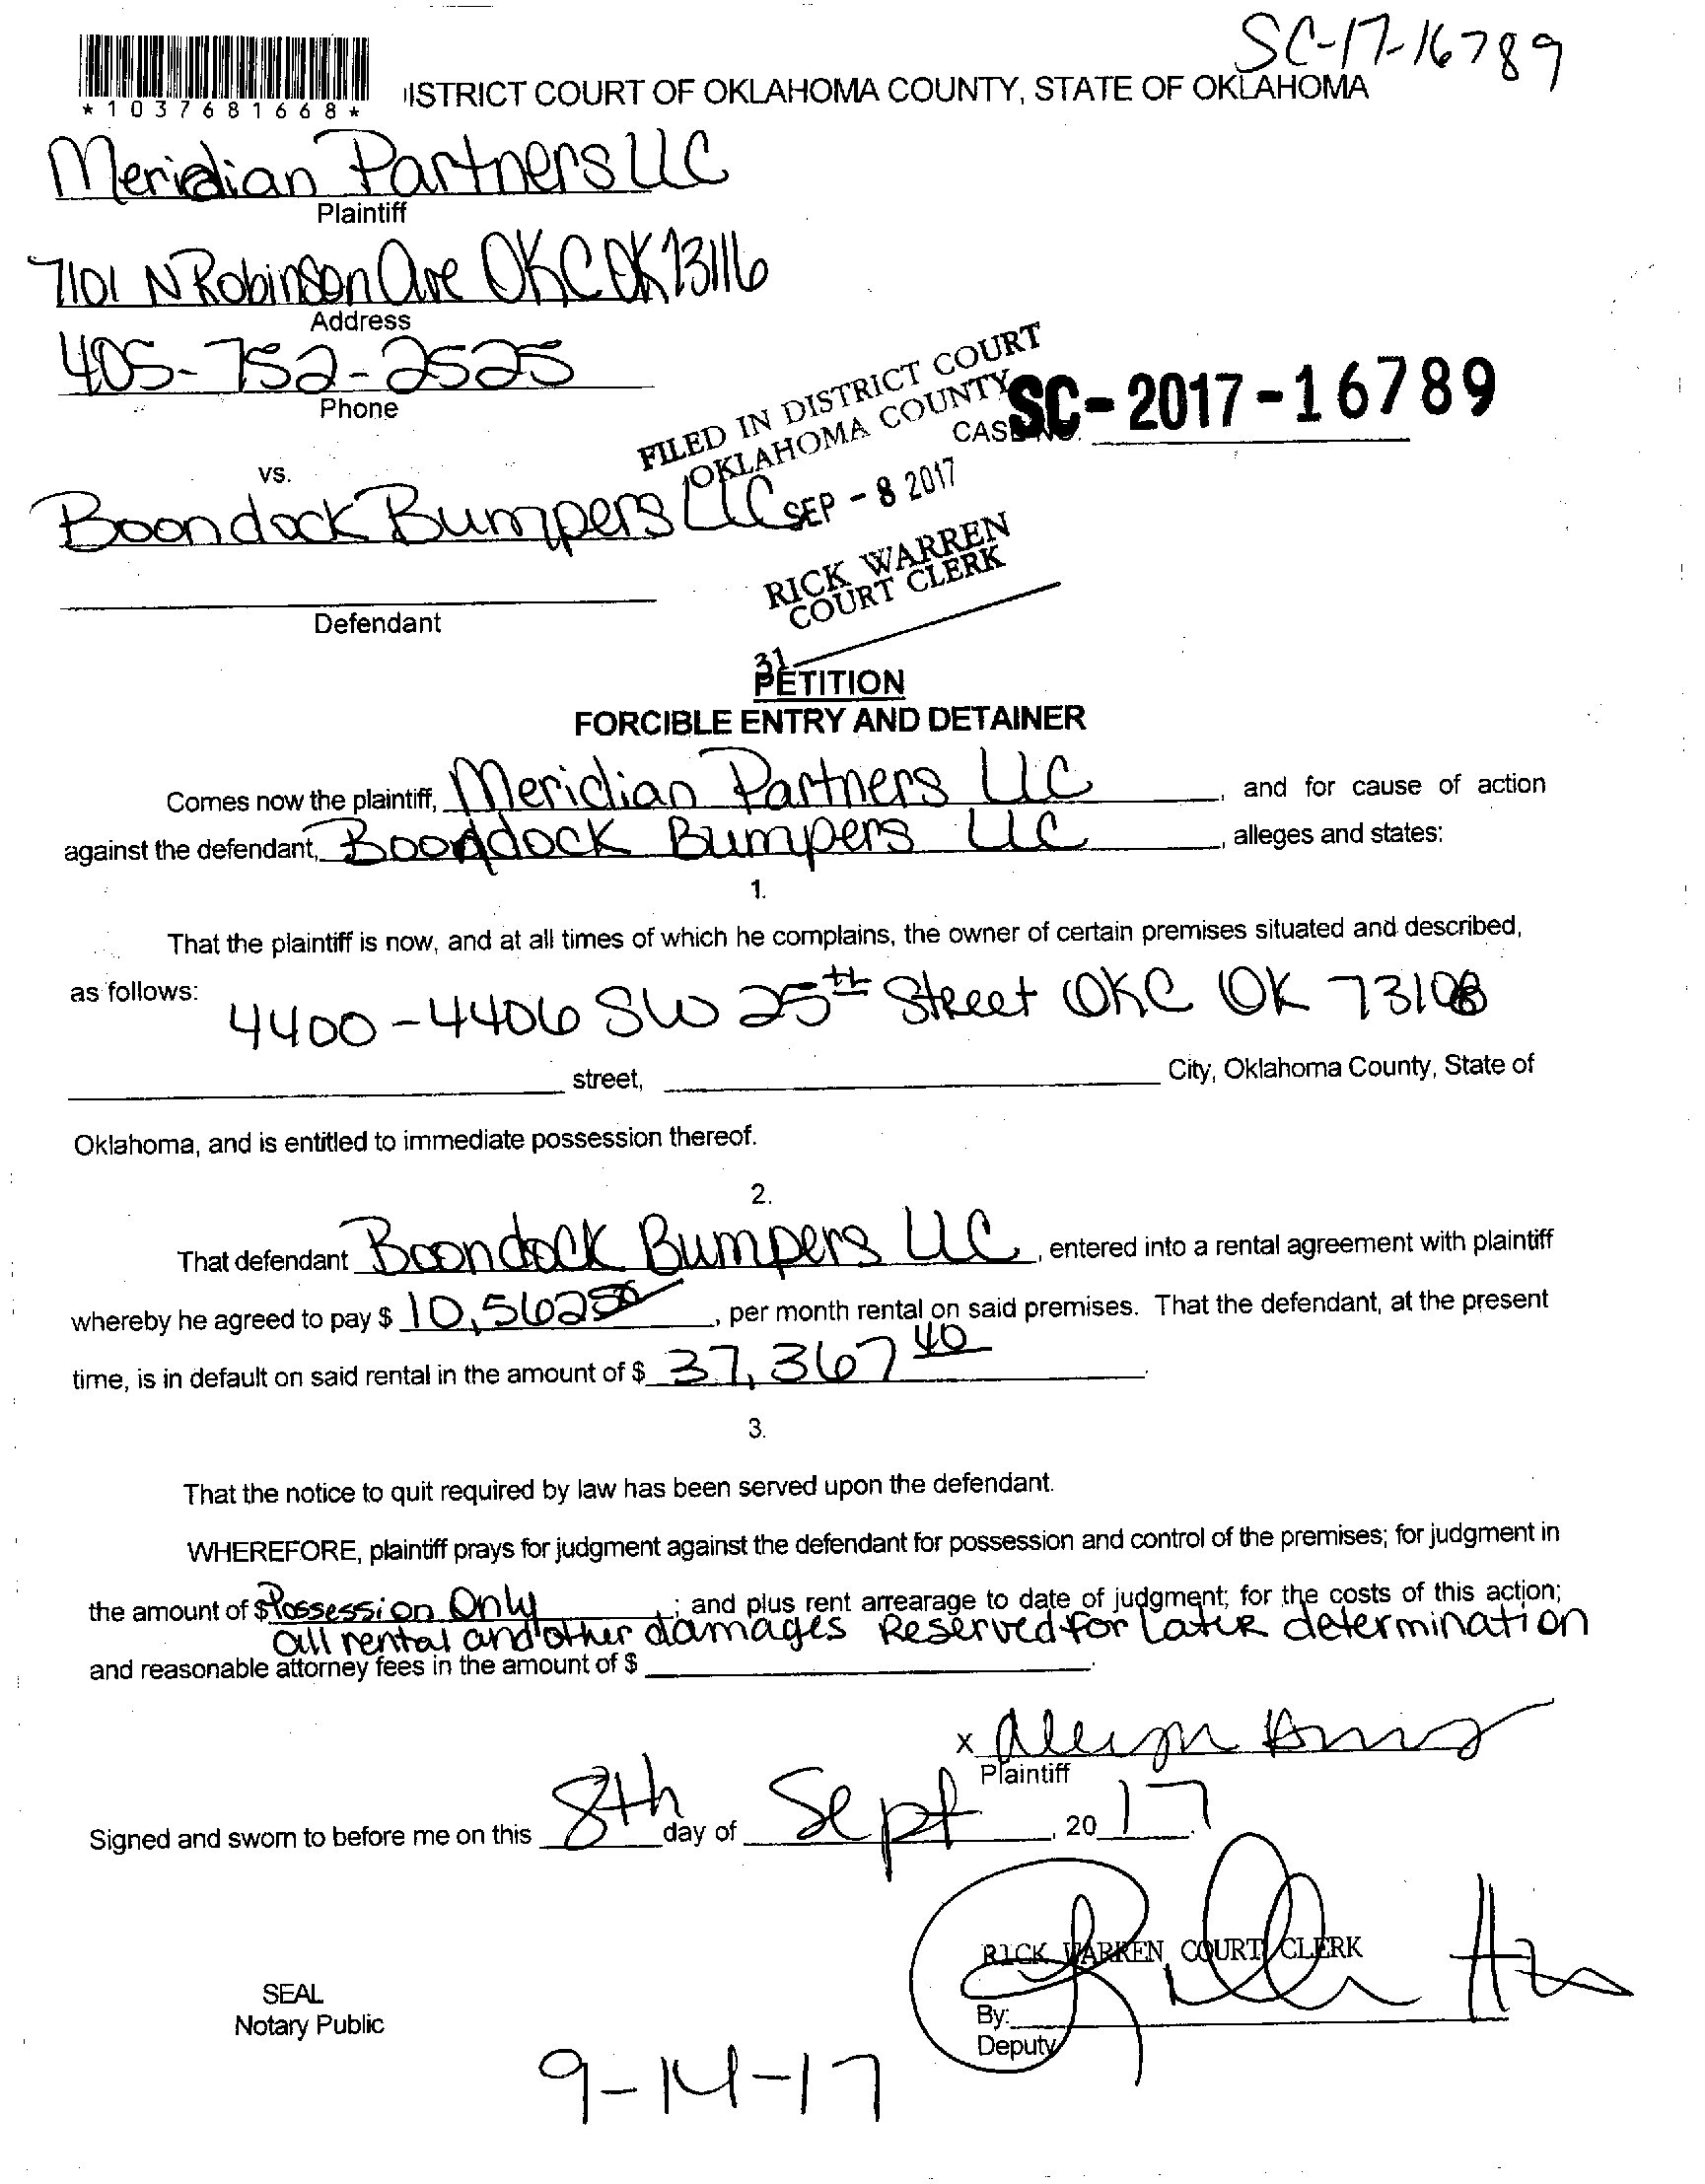 SC-17-16789
*1037681668*
ISTRICT COURT OF OKLAHOMA COUNTY, STATE OF OKLAHOMA
Meridian Partners LLC
Plaintiff
7101 N Robinson Ave OKC OK 73116
Address
405-752-2525
Phone
FILED IN DISTRICT COURT
OKLAHOMA COUNTY
CASE NO. SC-2017-16789
vs.
Boondock Bumpers LLC
SEP - 8 2017
RICK WARREN
COURT CLERK
Defendant
31
PETITION
FORCIBLE ENTRY AND DETAINER
Comes now the plaintiff, Meridian Partners LLC, and for cause of action
against the defendant, Boondock Bumpers LLC, alleges and states:
1.
That the plaintiff is now, and at all times of which he complains, the owner of certain premises situated and described,
as follows:
4400-4406 SW 25th Street OKC OK 73108
street, City, Oklahoma County, State of
Oklahoma, and is entitled to immediate possession thereof.
2.
That defendant Boondock Bumpers LLC, entered into a rental agreement with plaintiff
whereby he agreed to pay $ 10,562 50, per month rental on said premises. That the defendant, at the present
time, is in default on said rental in the amount of $ 37,367 40.
3.
That the notice to quit required by law has been served upon the defendant.
WHEREFORE, plaintiff prays for judgment against the defendant for possession and control of the premises; for judgment in
the amount of $ Possession Only; and plus rent arrearage to date of judgment; for the costs of this action;
all rental and other damages Reserved for Later determination
and reasonable attorney fees in the amount of $
x
Plaintiff
Signed and sworn to before me on this 8th day of Sept, 2017.
RICK WARREN, COURT CLERK
SEAL
Notary Public
By:
Deputy
9-14-17